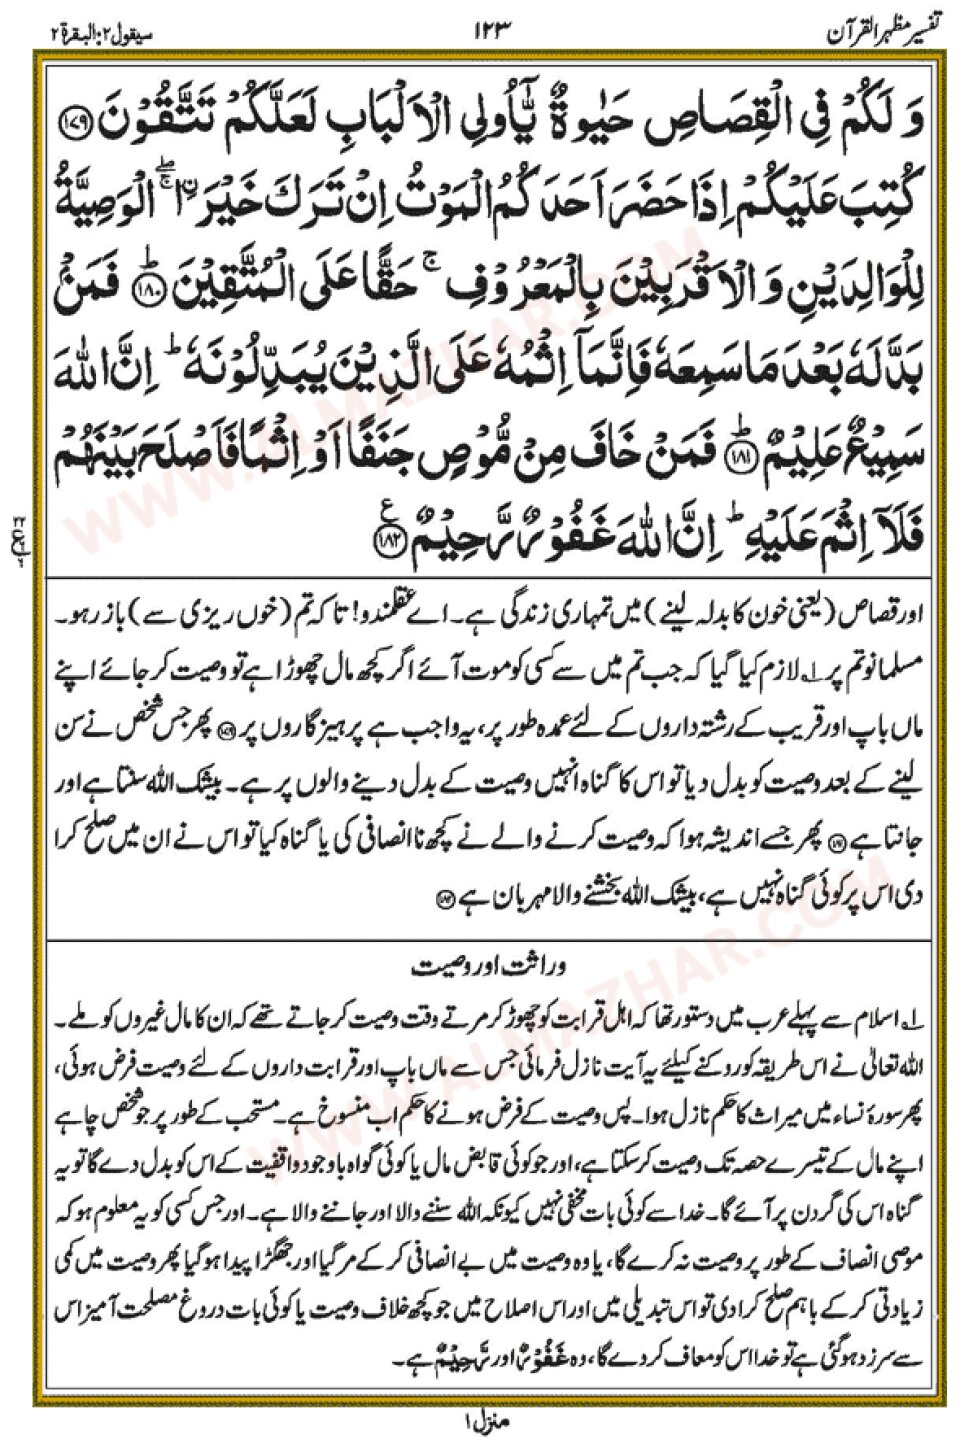 تفسیر مظہر القرآن
۱۲۳
سیقول ۲: البقرۃ ۲
وَ لَكُمْ فِی الْقِصَاصِ حَیٰوةٌ یّٰۤاُولِی الْاَلْبَابِ لَعَلَّكُمْ تَتَّقُوْنَ ﴿۱۷۹﴾
كُتِبَ عَلَیْكُمْ اِذَا حَضَرَ اَحَدَكُمُ الْمَوْتُ اِنْ تَرَكَ خَیْرَا ۖۚ الْوَصِیَّةُ
لِلْوَالِدَیْنِ وَ الْاَقْرَبِیْنَ بِالْمَعْرُوْفِ ۚ حَقًّا عَلَی الْمُتَّقِیْنَ ﴿۱۸۰﴾ؕ فَمَنْۢ
بَدَّلَهٗ بَعْدَ مَا سَمِعَهٗ فَاِنَّمَاۤ اِثْمُهٗ عَلَی الَّذِیْنَ یُبَدِّلُوْنَهٗ ؕ اِنَّ اللّٰهَ
سَمِیْعٌ عَلِیْمٌ ﴿۱۸۱﴾ؕ فَمَنْ خَافَ مِنْ مُّوْصٍ جَنَفًا اَوْ اِثْمًا فَاَصْلَحَ بَیْنَهُمْ
فَلَاۤ اِثْمَ عَلَیْهِ ؕ اِنَّ اللّٰهَ غَفُوْرٌ رَّحِیْمٌ ﴿۱۸۲﴾ع
اور قصاص (یعنی خون کا بدلہ لینے) میں تمہاری زندگی ہے۔ اے عقلمندو! تا کہ تم (خوں ریزی سے) باز رہو۔
مسلمانو تم پر ۱؎ لازم کیا گیا کہ جب تم میں سے کسی کو موت آئے اگر کچھ مال چھوڑا ہے تو وصیت کر جائے اپنے
ماں باپ اور قریب کے رشتہ داروں کے لئے عمدہ طور پر، یہ واجب ہے پرہیز گاروں پر پھر جس شخص نے سن
لینے کے بعد وصیت کو بدل دیا تو اس کا گناہ انہیں وصیت کے بدل دینے والوں پر ہے۔ بیشک اللہ سنتا ہے اور
جانتا ہے پھر جسے اندیشہ ہوا کہ وصیت کرنے والے نے کچھ نا انصافی کی یا گناہ کیا تو اس نے ان میں صلح کرا
دی اس پر کوئی گناہ نہیں ہے، بیشک اللہ بخشنے والا مہربان ہے
وراثت اور وصیت
۱؎ اسلام سے پہلے عرب میں دستور تھا کہ اہل قرابت کو چھوڑ کر مرتے وقت وصیت کر جاتے تھے کہ ان کا مال غیروں کو ملے۔
اللہ تعالیٰ نے اس طریقہ کو روکنے کیلئے یہ آیت نازل فرمائی جس سے ماں باپ اور قرابت داروں کے لئے وصیت فرض ہوئی،
پھر سورۂ نساء میں میراث کا حکم نازل ہوا۔ پس وصیت کے فرض ہونے کا حکم اب منسوخ ہے۔ مستحب کے طور پر جو شخص چاہے
اپنے مال کے تیسرے حصہ تک وصیت کر سکتا ہے، اور جو کوئی قابض مال یا کوئی گواہ باوجود واقفیت کے اس کو بدل دے گا تو یہ
گناہ اس کی گردن پر آئے گا۔ خدا سے کوئی بات مخفی نہیں کیونکہ اللہ سننے والا اور جاننے والا ہے۔ اور جس کسی کو یہ معلوم ہو کہ
موصی انصاف کے طور پر وصیت نہ کرے گا، یا وہ وصیت میں بے انصافی کر کے مر گیا اور جھگڑا پیدا ہو گیا پھر وصیت میں کمی
زیادتی کر کے باہم صلح کرا دی تو اس تبدیلی میں اور اس اصلاح میں جو کچھ خلاف وصیت یا کوئی بات دروغ مصلحت آمیز اس
سے سرزد ہو گئی ہے تو خدا اس کو معاف کر دے گا، وہ غَفُوْرٌ اور رَّحِیْمٌ ہے۔
منزل ۱
WWW.ALMAZHAR.COM
WWW.ALMAZHAR.COM